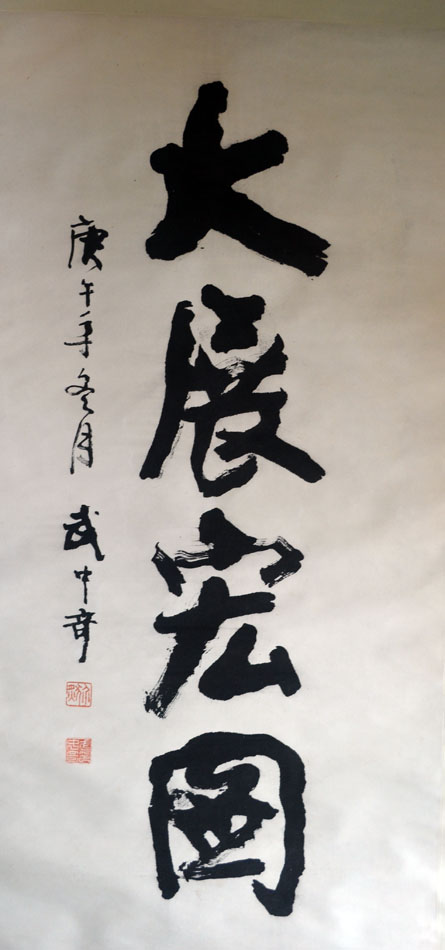 大展宏圖
庚午年冬月 武中奇